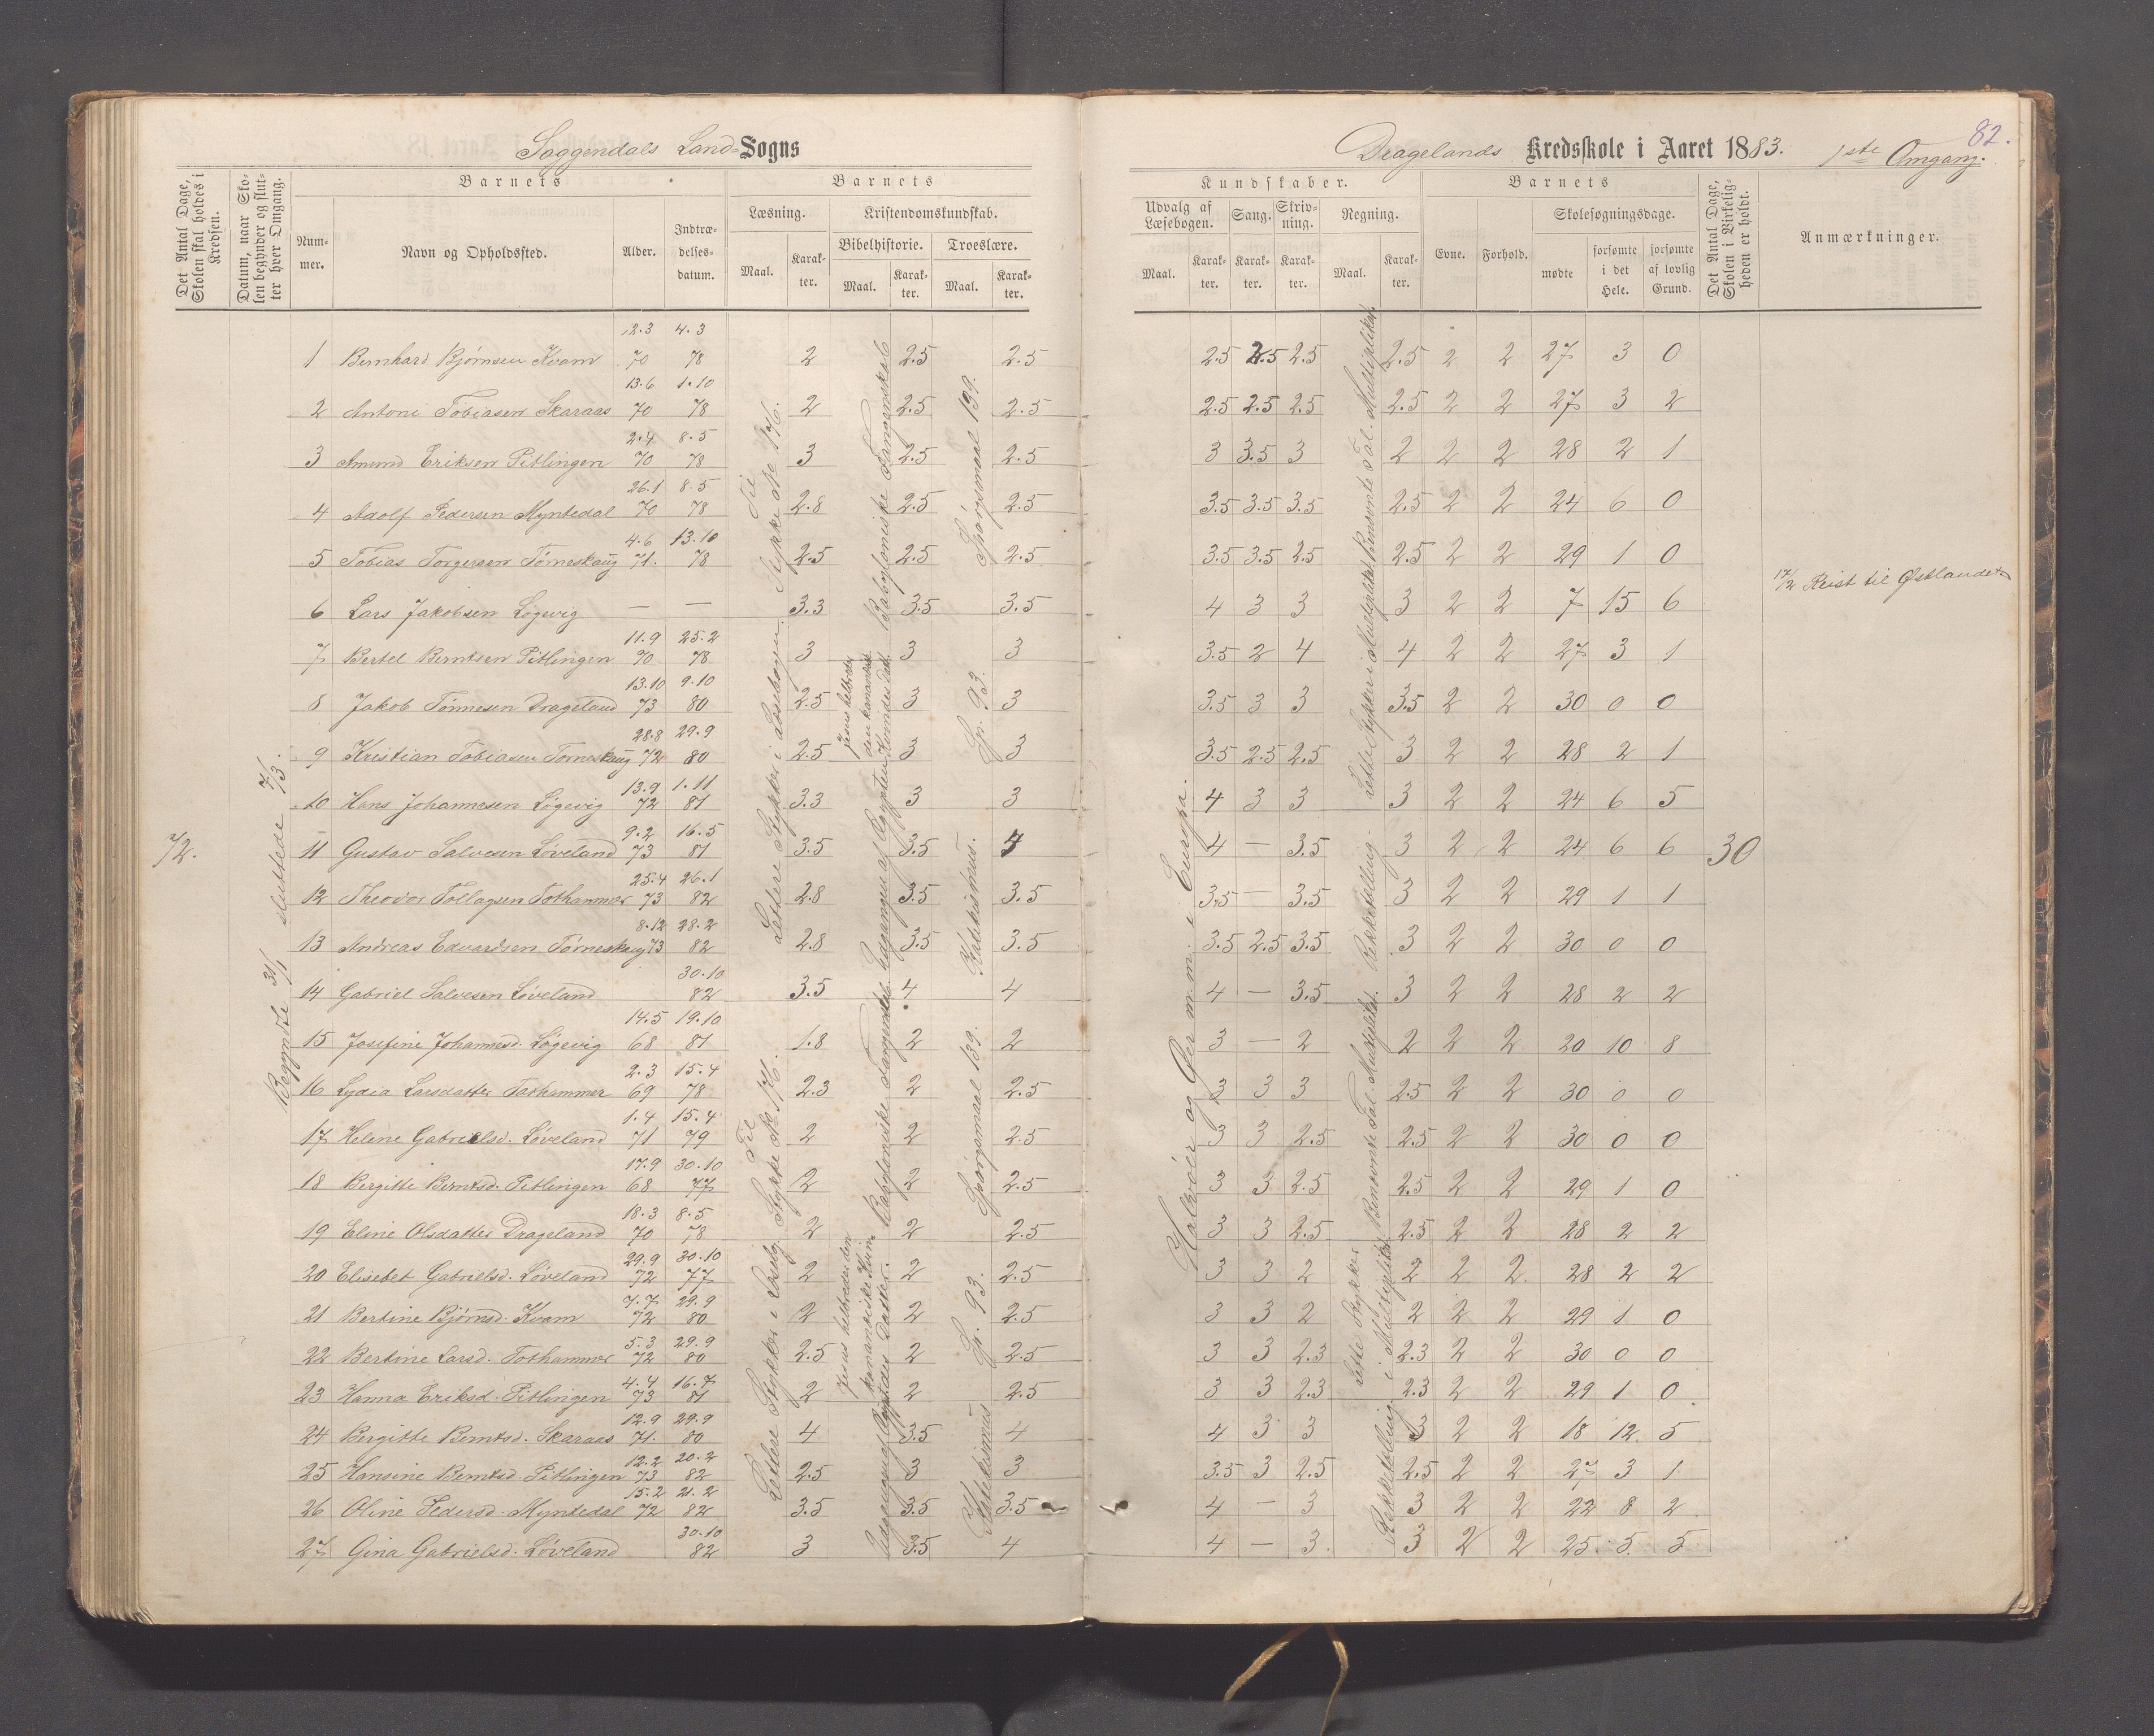 Soggendals Land-Sogns
Dragelands Kredsskole i Aaret 1883. 1ste Omgang.
82.
Det Antal Dage, Skolen skal holdes i Kredsen.
Datum, naar Skolen begynder og slutter hver Omgang.
Barnets
Nummer.
Navn og Opholdssted.
Alder.
Indtrædelsesdatum.
Barnets
Læsning.
Maal.
Karakter.
Kristendomskundskab.
Bibelhistorie.
Maal.
Karakter.
Troeslære.
Maal.
Karakter.
Kundskaber.
Udvalg af Læsebogen.
Maal.
Karakter.
Sang.
Karakter.
Skrivning.
Karakter.
Regning.
Maal.
Karakter.
Barnets
Evne.
Forhold.
Skolesøgningsdage.
mødte
forsømte i det Hele.
forsømte af lovlig Grund.
Det Antal Dage, Skolen i Virkeligheden er holdt.
Anmærkninger.
72.
Begyndte 31/1 sluttede 7/3.
1 Bernhard Bjørnsen Kvam 12.3 70 4.3 78 2 2.5 2.5 2.5 2.5 2.5 2.5 2 2 27 3 0
2 Antoni Tobiasen Skaraas 13.6 70 1.10 78 2 2.5 2.5 2.5 2.5 2.5 2.5 2 2 27 3 2
3 Amund Eriksen Pitlingen 2.4 70 8.5 78 3 2.5 2.5 3 3.5 3 2 2 2 28 2 1
4 Adolf Pedersen Myntedal 26.1 70 8.5 78 2.8 2.5 2.5 3.5 3.5 3.5 2.5 2 2 24 6 0
5 Tobias Torgersen Tørneskaug 4.6 71. 13.10 78 2.5 2.5 2.5 3.5 3.5 2.5 2.5 2 2 29 1 0
6 Lars Jakobsen Løgevig — — 3.3 3.5 3.5 4 3 3 3 2 2 7 15 6 17/2 Reist til Østlandet
7 Bertel Berntsen Pitlingen 11.9 70 25.2 78 3 3 3 3.5 2 4 4 2 2 27 3 1
8 Jakob Tønnesen Drageland 13.10 73 9.10 80 2.5 3 3 3.5 3 3 3.5 2 2 30 0 0
9 Kristian Tobiasen Torneskaug 28.8 72 29.9 80 2.5 3 3 3.5 2.5 2.5 3 2 2 28 2 1
10 Hans Johannesen Løgevig 13.9 72 1.11 81 3.3 3 3 4 3 3 3 2 2 24 6 5
11 Gustav Salvesen Løveland 9.2 73 16.5 81 3.5 3.5 4 4 — 3.5 3 2 2 24 6 6 30
12 Theodor Tollagsen Tothammer 25.4 73 26.1 82 2.8 3.5 3.5 3.5 — 3.5 3 2 2 29 1 1
13 Andreas Edvardsen Tørneskaug 8.12 73 28.2 82 2.8 3.5 3.5 3.5 2.5 3.5 3 2 2 30 0 0
14 Gabriel Salvesen Løveland 30.10 82 3.5 4 4 4 — 3.5 3 2 2 28 2 2
15 Josefine Johannesd. Løgevig 14.5 68 19.10 81 1.8 2 2 3 — 2 2 2 2 20 10 8
16 Lydia Larsdatter Tothammer 2.3 69 15.4 78 2.3 2 2.5 3 3 3 2.5 2 2 30 0 0
17 Helene Gabrielsd. Løveland 1.4 71 15.4 79 2 2 2.5 3 3 2.5 2.5 2 2 30 0 0
18 Bergitte Berntsd. Pitlingen 17.9 68 30.10 77 2 2 2.5 3 3 2.5 2.5 2 2 29 1 0
19 Eline Olsdatter Drageland 18.3 70 8.5 78 2 2 2.5 3 3 2.5 2.5 2 2 28 2 2
20 Elisebet Gabrielsd. Løveland 29.9 72 30.10 77 2 2 2.5 3 3 2 2 2 2 28 2 2
21 Bertine Bjørnsd. Kvam 7.7 72 29.9 80 2 2 2.5 3 3 2 2 2 2 29 1 0
22 Bertine Larsd. Tothammer 5.3 72 29.9 80 2.5 2 2.5 3 3 2.3 2.3 2 2 30 0 0
23 Hanna Eriksd. Pitlingen 4.4 73 16.7 81 2 2 2.5 3 3 2.3 2.3 2 2 29 1 0
24 Bergitte Berntsd. Skaraas 12.9 71. 29.9 80 4 3.5 4 4 3 3 3 2 2 18 12 5
25 Hansine Berntsd. Pitlingen 12.2 73 20.2 82 2.5 3 3 3.5 3 2.5 2.5 2 2 27 3 1
26 Oline Pedersd. Myntedal 15.2 72 21.2 82 3.5 3.5 3.5 4 — 3 3 2 2 22 8 2
27 Gina Gabrielsd. Løveland 30.10 82 3 3.5 4 4 — 3 3 2 2 25 5 5
Lettere Stykker i Læsebogen. Til Stykke No 176.
Udgangen af Ægypten Babyloniske Fangenskab
Katekismus. Sp. 93. Spørgsmaal 139.
Lettere Stykker i Læseb. Til Stykke No 176.
Jesus helbreder den kananæiske Kvindes Datter. Babyloniske Fangenskab
Katekismus Sp. 93. Spørgsmaal 139.
Halvøer og Øer m.m. i Europa.
Rekketælling. Lette Stykker i Multiplikat. Benævnte Tal. Multiplikat.